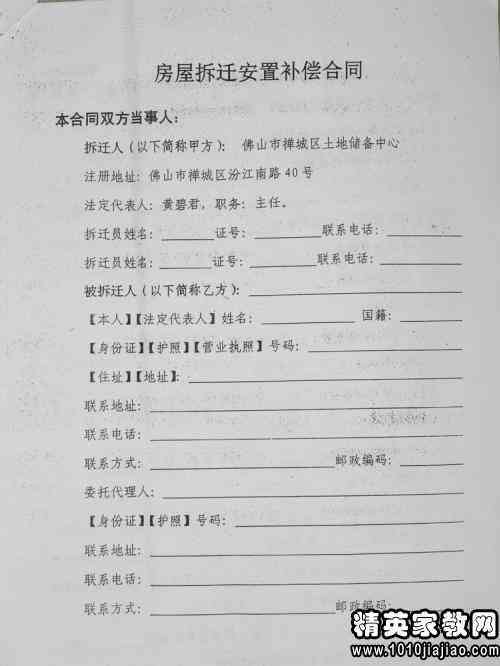 房屋拆迁安置补偿合同
本合同双方当事人：
拆迁人（以下简称甲方）： 佛山市禅城区土地储备中心
注册地址：佛山市禅城区汾江南路 40 号
法定代表人：黄碧君，职务：主任。
拆迁员姓名：______证号：________联系电话：________
拆迁员姓名：______证号：________联系电话：________
被拆迁人（以下简称乙方）：________________
【本人】【法定代表人】姓名：____________ 国籍：________
【身份证】【护照】【营业执照】号码：________________
【住址】【地址】：________________
联系地址：________________
联系电话：________________
联系方式：________________邮政编码：________
委托代理人：________________
【身份证】【护照】号码：________________
联系地址：________________
联系电话：________________
联系方式：________________邮政编码：
精英家教网
www.1010jiajiao.com